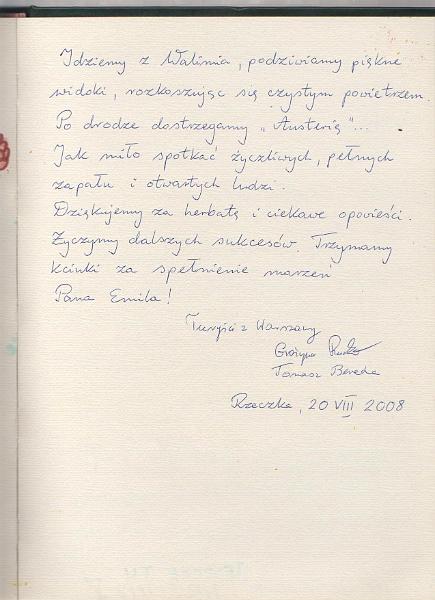 Idziemy z Walimia, podziwiamy piękne
widoki, rozkoszując się czystym powietrzem.
Po drodze dostrzegamy „Austerię"...
Jak miło spotkać życzliwych, pełnych
zapału i otwartych ludzi.
Dziękujemy za herbatę i ciekawe opowieści.
Życzymy dalszych sukcesów. Trzymamy
kciuki za spełnienie marzeń
Pana Emila!
Turyści z Warszawy
Grażyna
Tomasz Bereda
Rzeczka, 20 VIII 2008